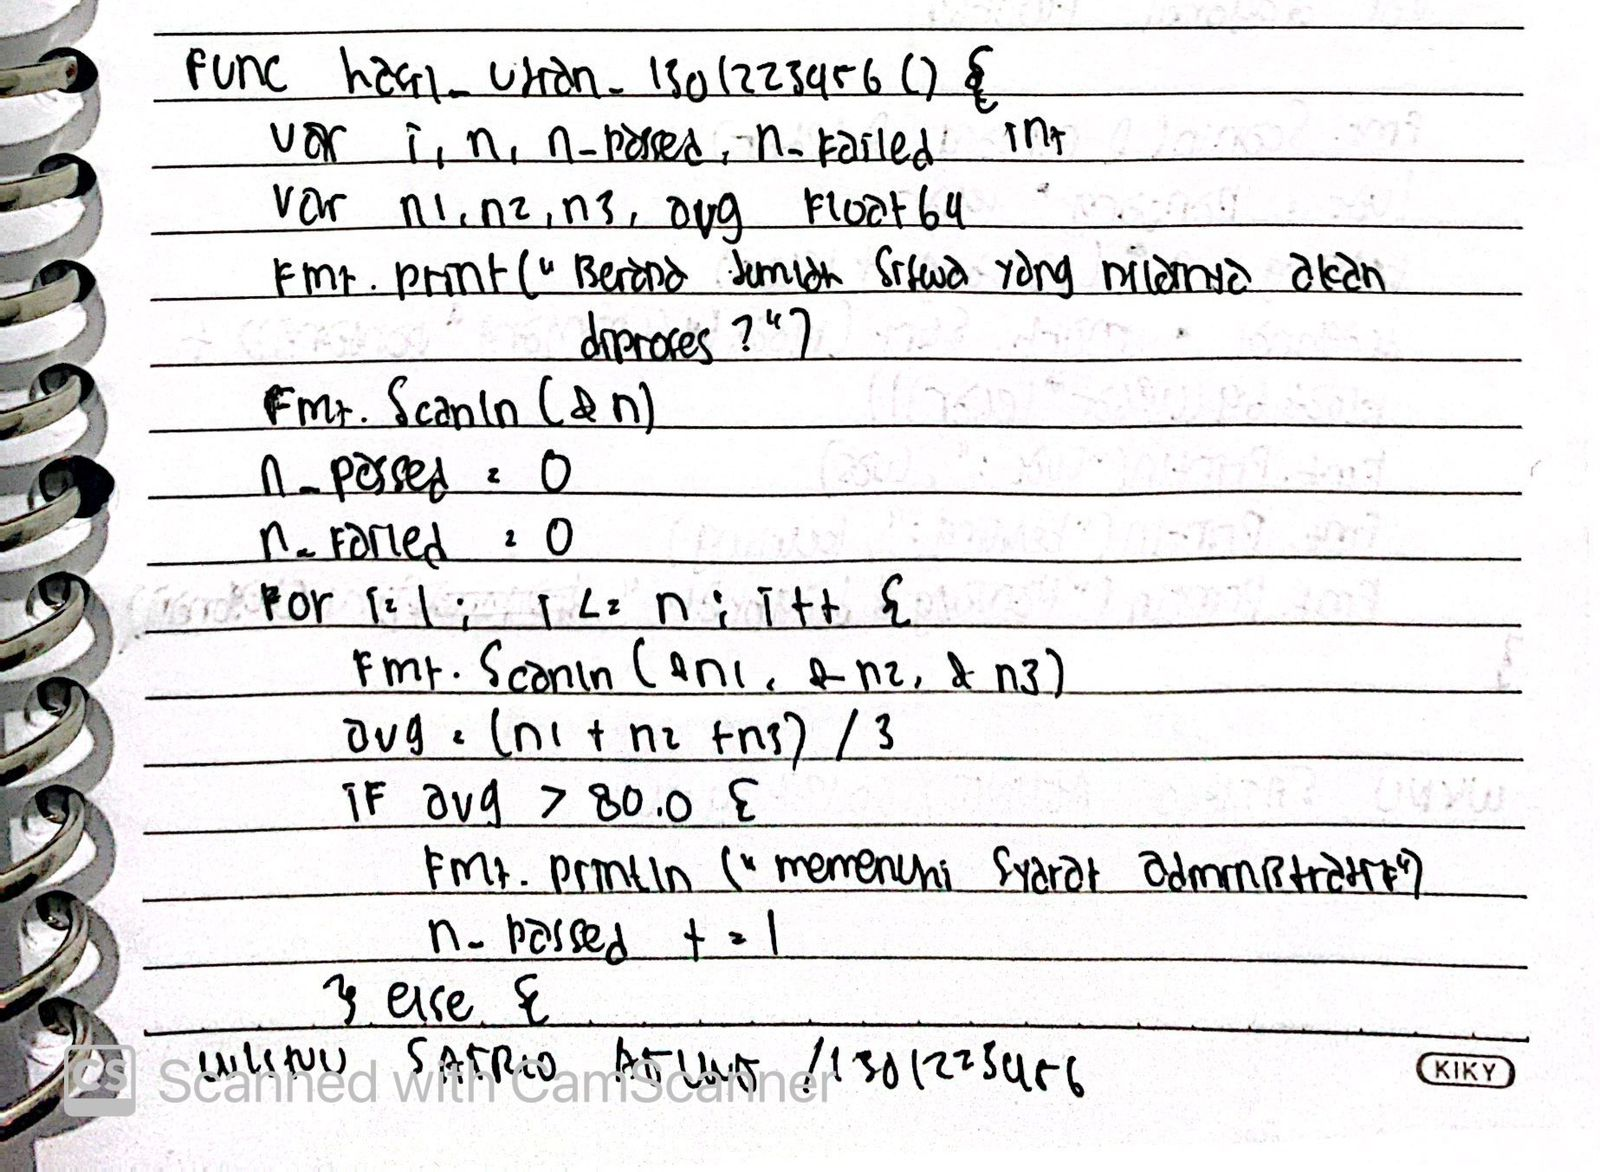 func hasil_ujian_1301223456 () {
var i, n, n_passed, n_failed int
var n1, n2, n3, avg float64
fmt. print ("Berapa Jumlah siswa yang nilainya akan
diproses ?")
fmt. Scanln (& n)
n_passed = 0
n_failed = 0
for i=1 ; i <= n ; i++ {
fmt. Scanln (&n1, & n2, & n3)
avg = (n1 + n2 +n3) / 3
if avg > 80.0 {
fmt. println ("memenuhi syarat administratif")
n_passed += 1
} else {
WISNU SATRIO /1301223456
CS Scanned with CamScanner
KIKY